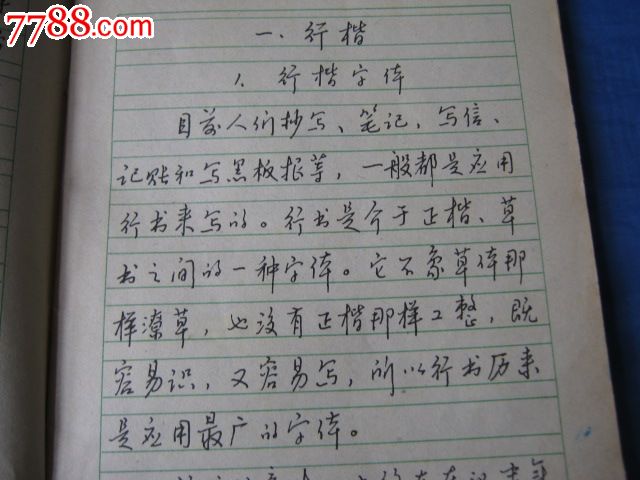 7788.com
一、行楷
1. 行楷字体
目前人们抄写、笔记、写信、
记账和写黑板报等，一般都是应用
行书来写的。行书是介于正楷、草
书之间的一种字体。它不象草体那
样潦草，也没有正楷那样工整，既
容易识，又容易写，所以行书历来
是应用最广的字体。